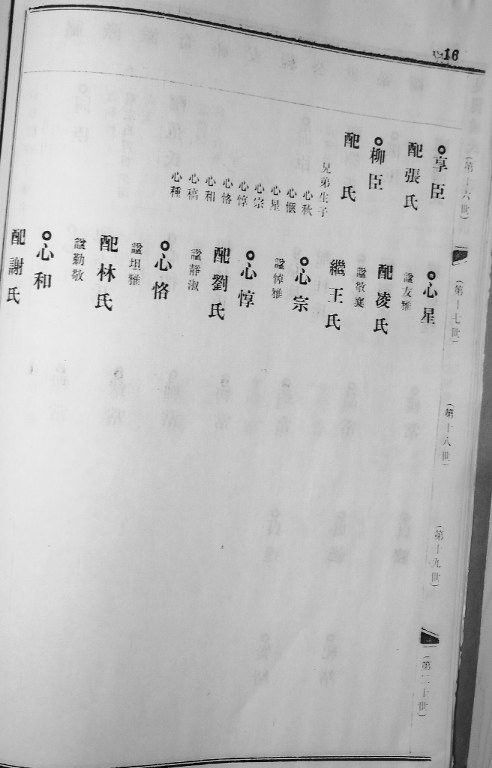 心-16
(第十六世)
享臣
配張氏
柳臣
配 氏
兄弟生子
心秋
心愜
心星
心宗
心惇
心恪
心和
心稿
心種
(第十七世)
心星
諡友雅
配凌氏
諡敬寞
繼王氏
心宗
諡惇雅
心惇
配劉氏
諡靜淑
心恪
諡坦雅
配林氏
諡勤敬
心和
配謝氏
(第十八世)
(第十九世)
(第二十世)